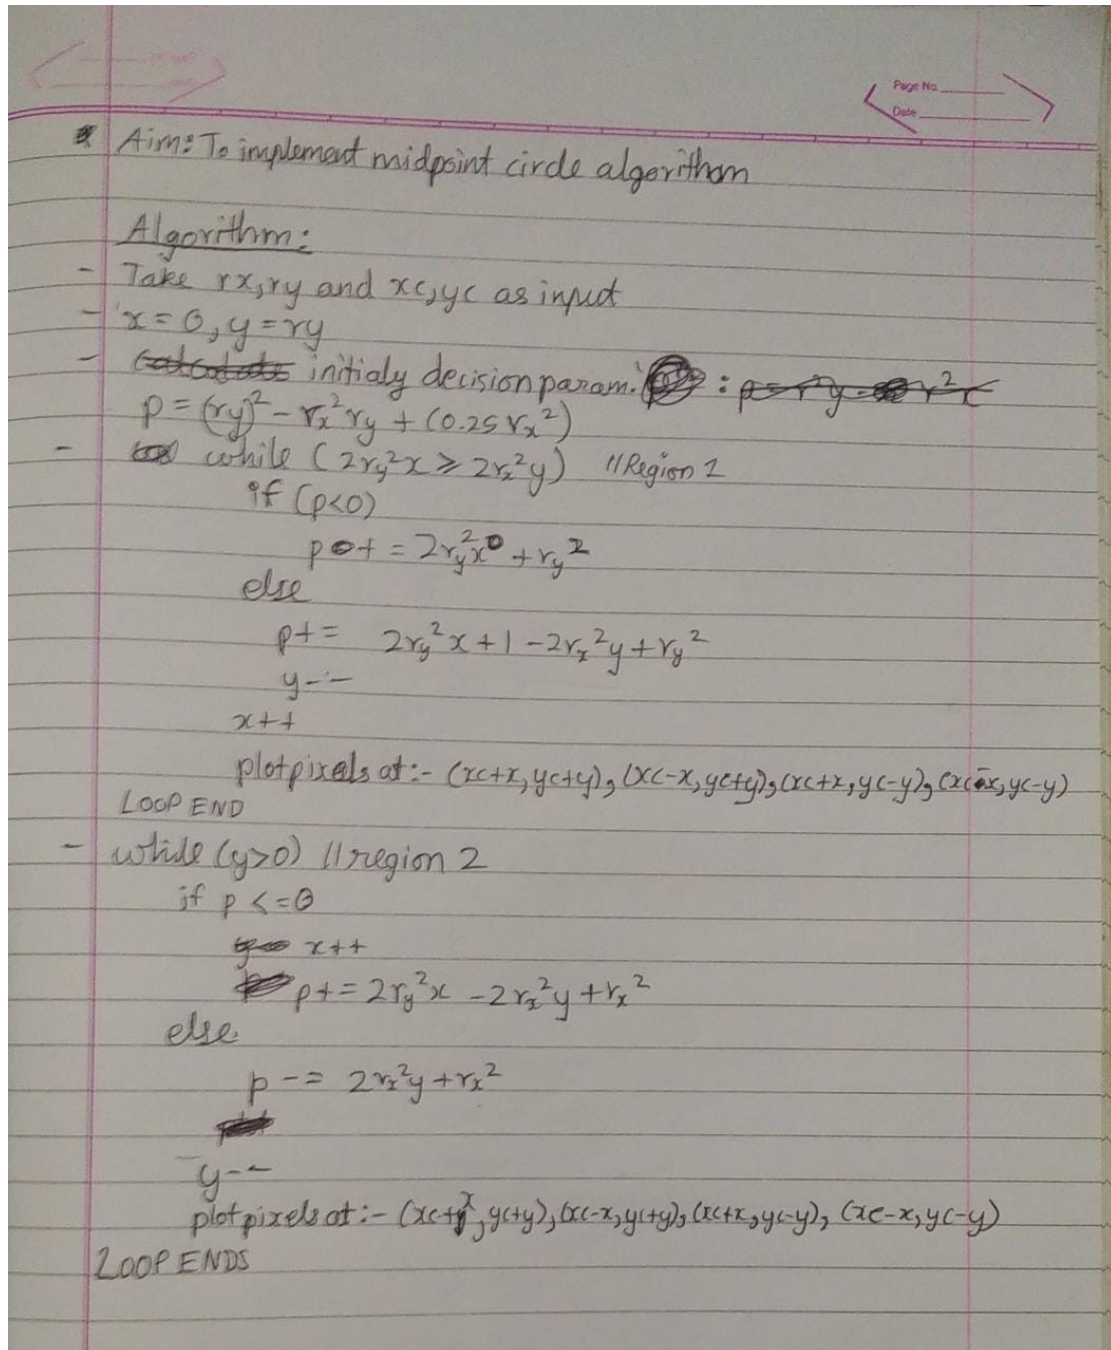 Page No.
Date
Aim: To implement midpoint circle algorithom
Algorithm:
- Take rx, ry and xc, yc as input
- x = 0, y = ry
- initialy decision param. :
p = (ry)² - rx² ry + (0.25 rx²)
- while (2ry²x ≥ 2rx²y) // Region 1
if (p<0)
p + = 2ry²x + ry²
else
p+= 2ry²x + 1 - 2rx²y + ry²
y--
x++
plot pixels at :- (xc+x, yc+y), (xc-x, yc+y), (xc+x, yc-y), (xc-x, yc-y)
LOOP END
- while (y>0) // region 2
if p <=0
x++
p+= 2ry²x - 2rx²y + rx²
else
p -= 2rx²y + rx²
y--
plot pixels at :- (xc+x, yc+y), (xc-x, yc+y), (xc+x, yc-y), (xc-x, yc-y)
LOOP ENDS